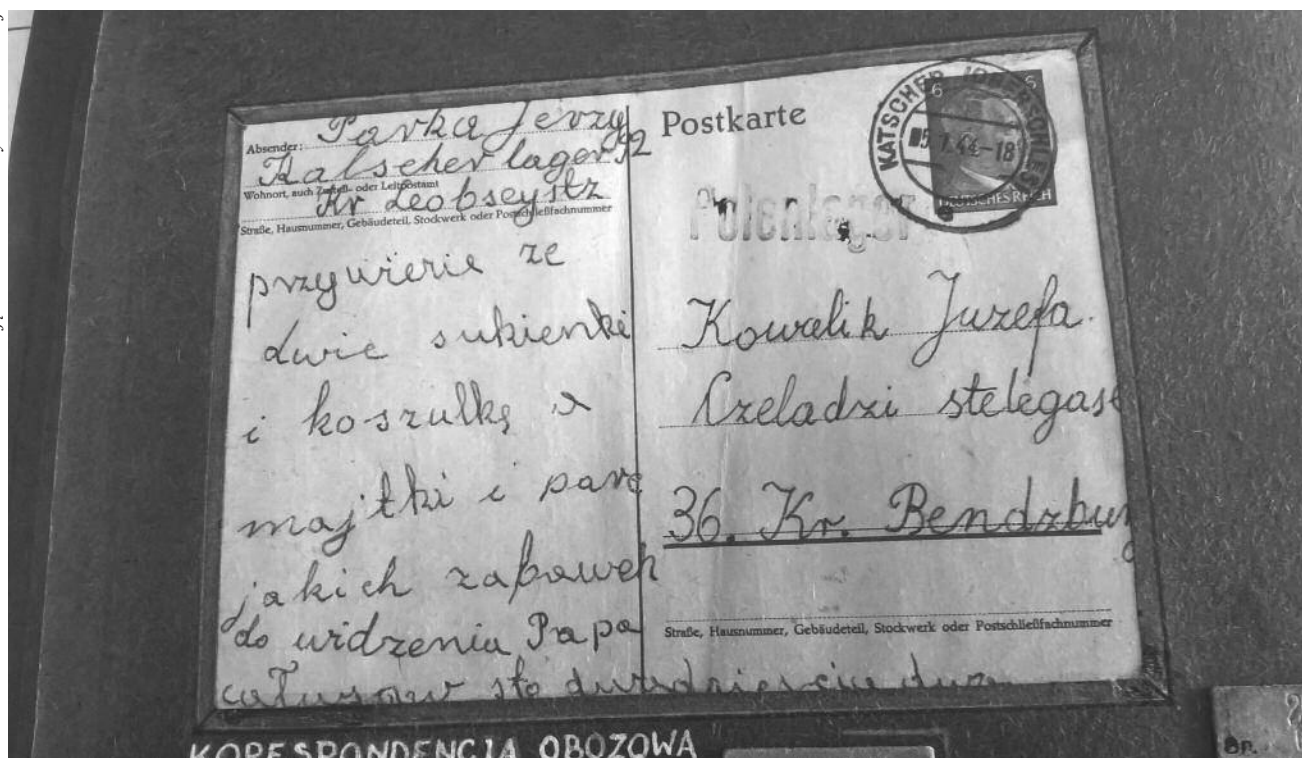 Absender: Pavka Jerzy
Katscher lager 92
Wohnort, auch Zustell- oder Leitpostamt
Kr Leobseystz
Straße, Hausnummer, Gebäudeteil, Stockwerk oder Postschließfachnummer
przywierie ze
dwie sukienki
i koszulkę
majtki i parę
jakich zabawek
do widzenia Papa
całusow sto dwadzieścia dwa
Postkarte
KATSCHER (OBERSCHLES)
5.1.44-18
6 6
DEUTSCHES REICH
Polenlager
Kowalik Juzefa.
Czeladzi stelegase
36. Kr. Bendzburg
Straße, Hausnummer, Gebäudeteil, Stockwerk oder Postschließfachnummer
KORESPONDENCJA OBOZOWA